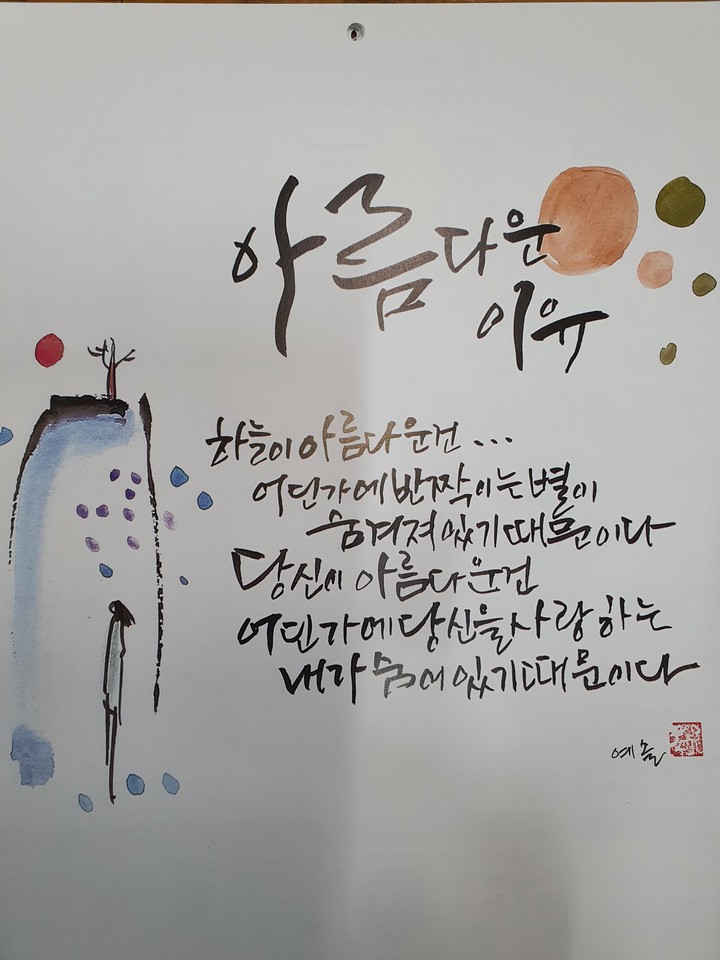 아름다운
이유
하늘이 아름다운건 ...
어딘가에 반짝이는 별이
숨겨져 있기 때문이다
당신이 아름다운건
어딘가에 당신을 사랑하는
내가 숨어 있기 때문이다
예솔